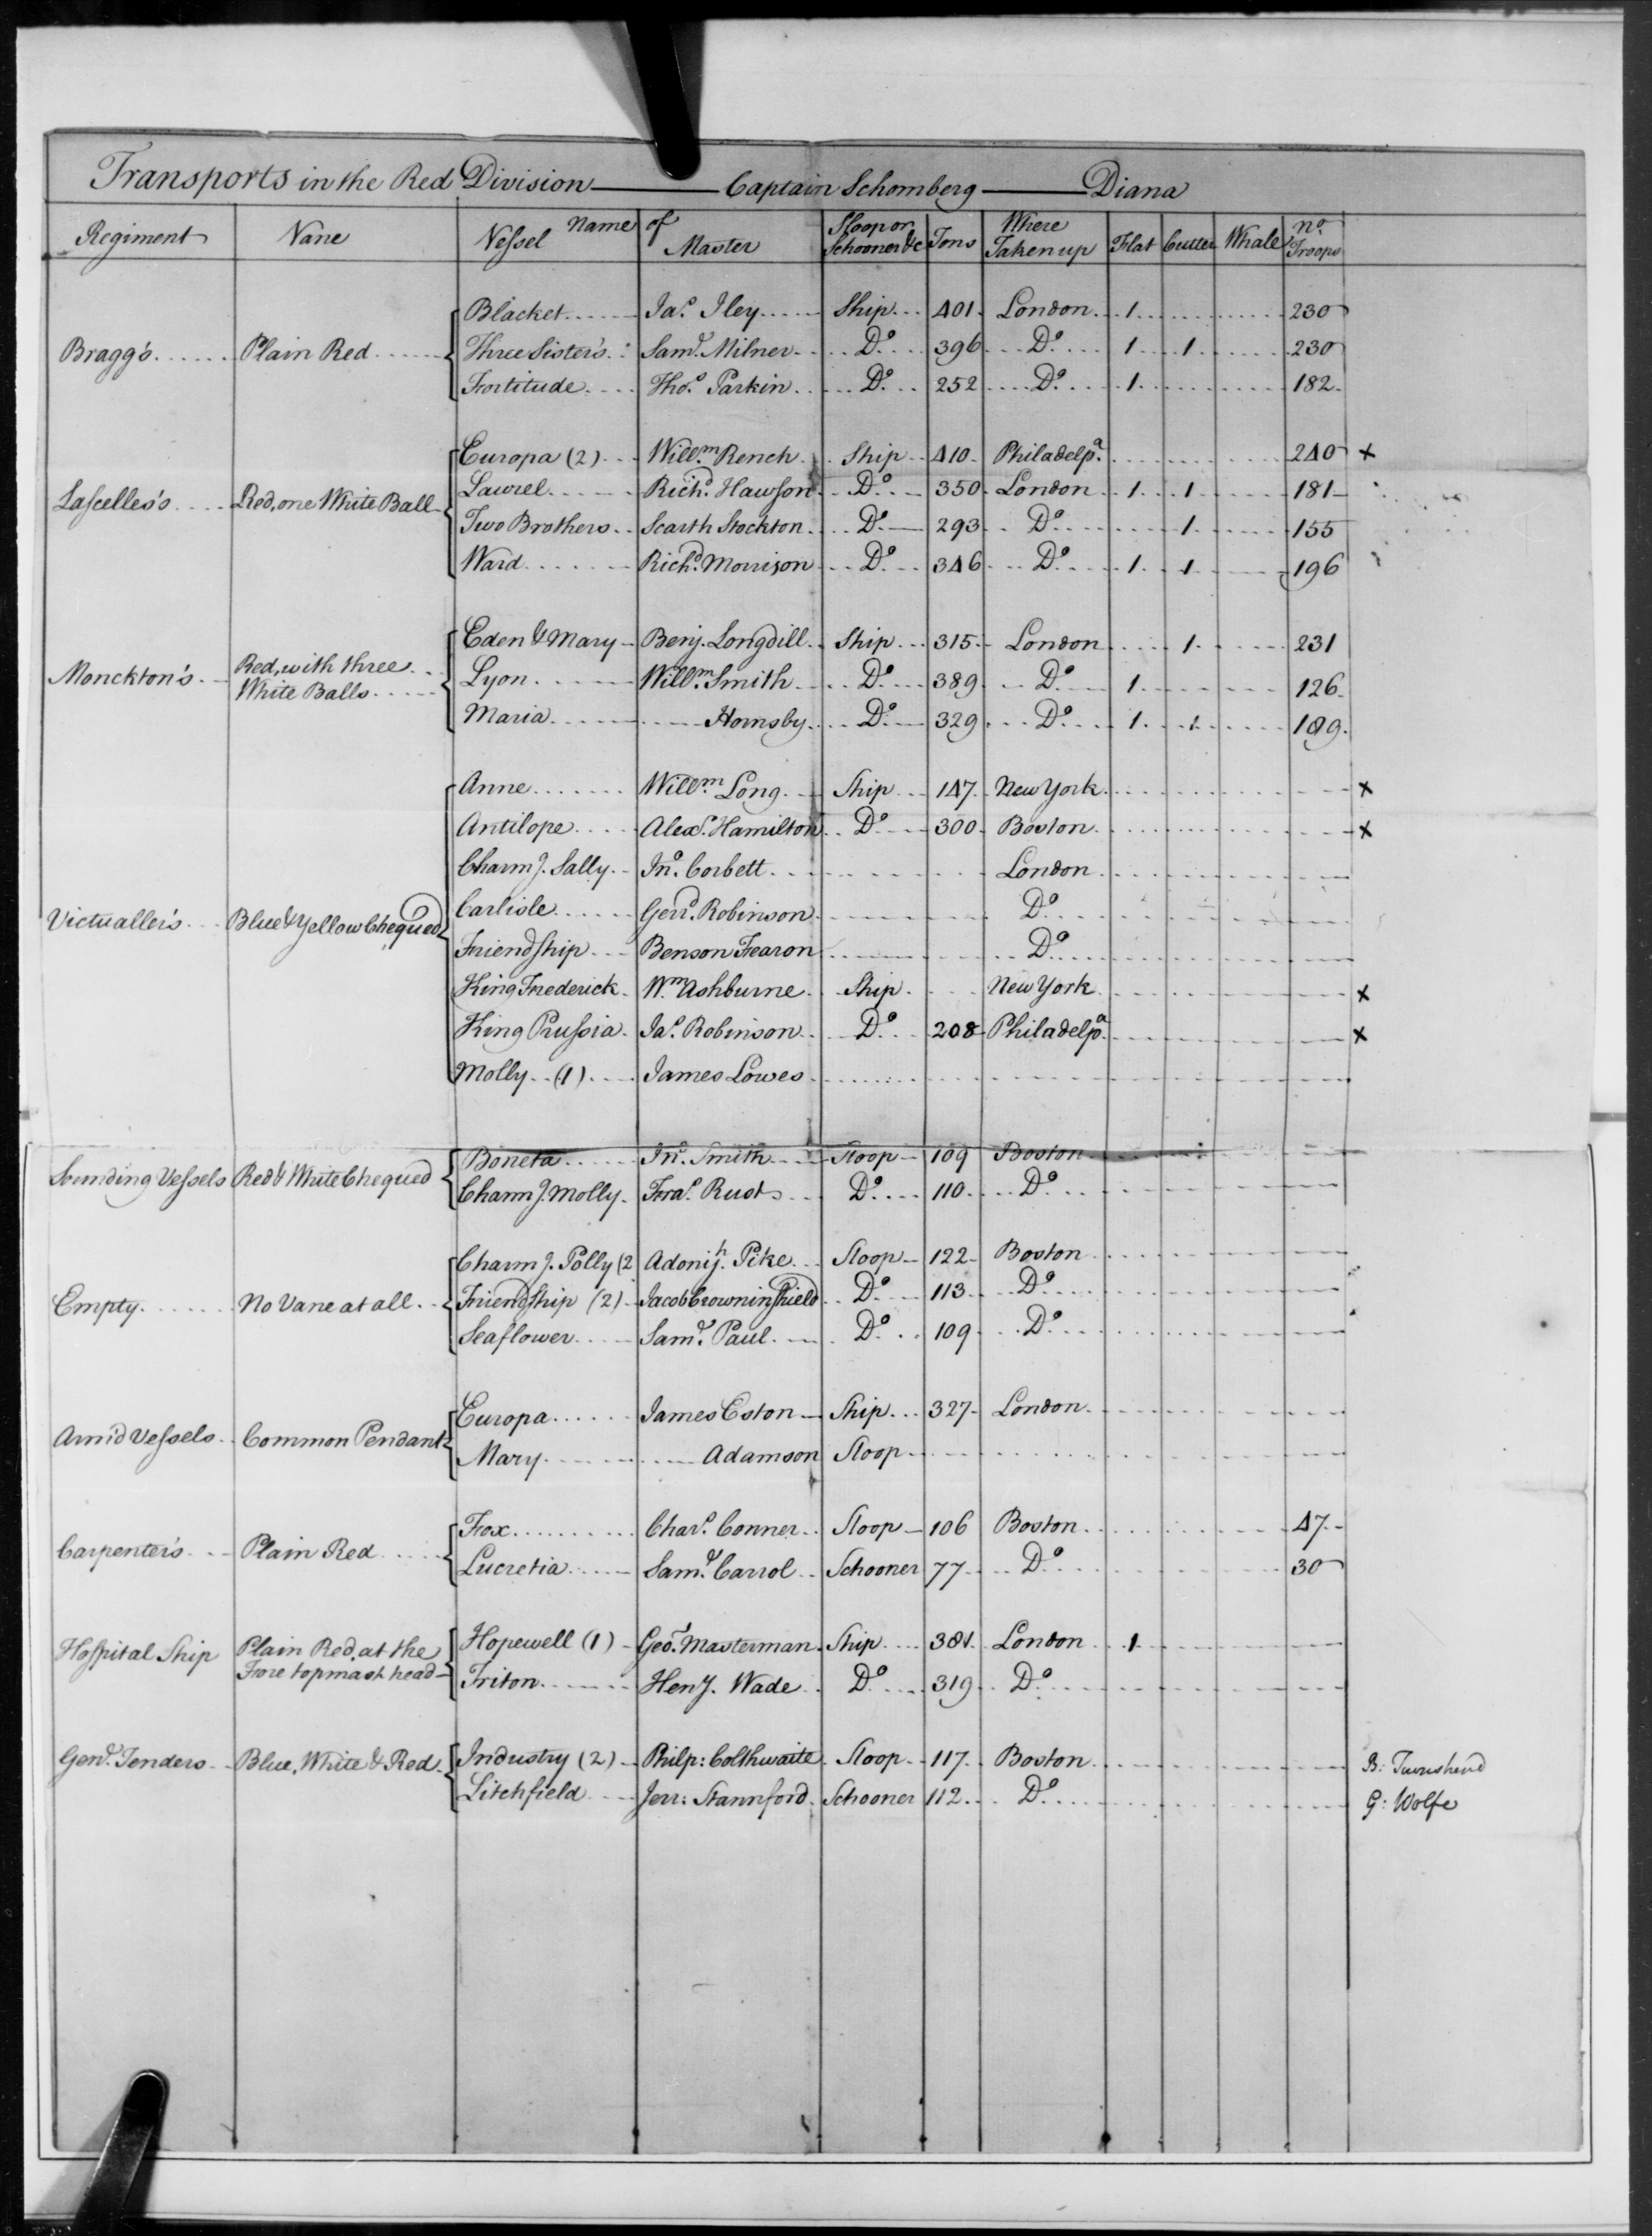 Transports in the Red Division Captain Schomberg Diana
Regiment Vane Vessel Name of Master Sloop or Schooner &c Tons Where Taken up Flat Cutter Whale No. Troops
Blacket Jas. Iley Ship 401 London 1 230
Bragg's Plain Red Three Sisters Saml. Milner Do. 396 Do. 1 1 230
Fortitude Thos. Parkin Do. 252 Do. 1 182
Europa (2) Willm. Rench Ship 410 Philadelpa. 240 x
Lascelles's Red, one White Ball Laurel Richd. Hawson Do. 350 London 1 1 181
Two Brothers Scarth Stockton Do. 293 Do. 1 155
Ward Richd. Morrison Do. 346 Do. 1 1 196
Eden & Mary Benj. Longdill Ship 315 London 1 231
Monckton's Red, with three White Balls Lyon Willm. Smith Do. 389 Do. 1 126
Maria Hornsby Do. 329 Do. 1 1 189
Anne Willm. Long Ship 147 New York x
Antilope Alexr. Hamilton Do. 300 Boston x
Charmg. Sally Jno. Corbett London
Victualler's Blue & Yellow Chequed Carlisle Gerrd. Robinson Do.
Friendship Benson Fearon Do.
King Frederick Wm. Ashburne Ship New York x
King Prussia Jas. Robinson Do. 208 Philadelpa. x
Molly (1) James Lowes
Sounding Vessels Red & White Chequed Boneta Jno. Smith Sloop 109 Boston
Charmg. Molly Fras. Rust Do. 110 Do.
Charmg. Polly (2 Adonijh. Pike Sloop 122 Boston
Empty No Vane at all Friendship (2) Jacob Crowninshield Do. 113 Do.
Seaflower Saml. Paul Do. 109 Do.
Europa James Eston Ship 327 London
Armd. Vessels Common Pendant Mary Adamson Sloop
Fox Chars. Conner Sloop 106 Boston 47
Carpenter's Plain Red Lucretia Saml. Carrol Schooner 77 Do. 30
Hospital Ship Plain Red, at the Fore topmast head Hopewell (1) Geo. Masterman Ship 381 London 1
Triton Heny. Wade Do. 319 Do.
Genl. Tenders Blue, White & Red Industry (2) Philp: Colthwaite Sloop 117 Boston B: Townshend
Litchfield Jerr: Stannford Schooner 112 Do. G: Wolfe